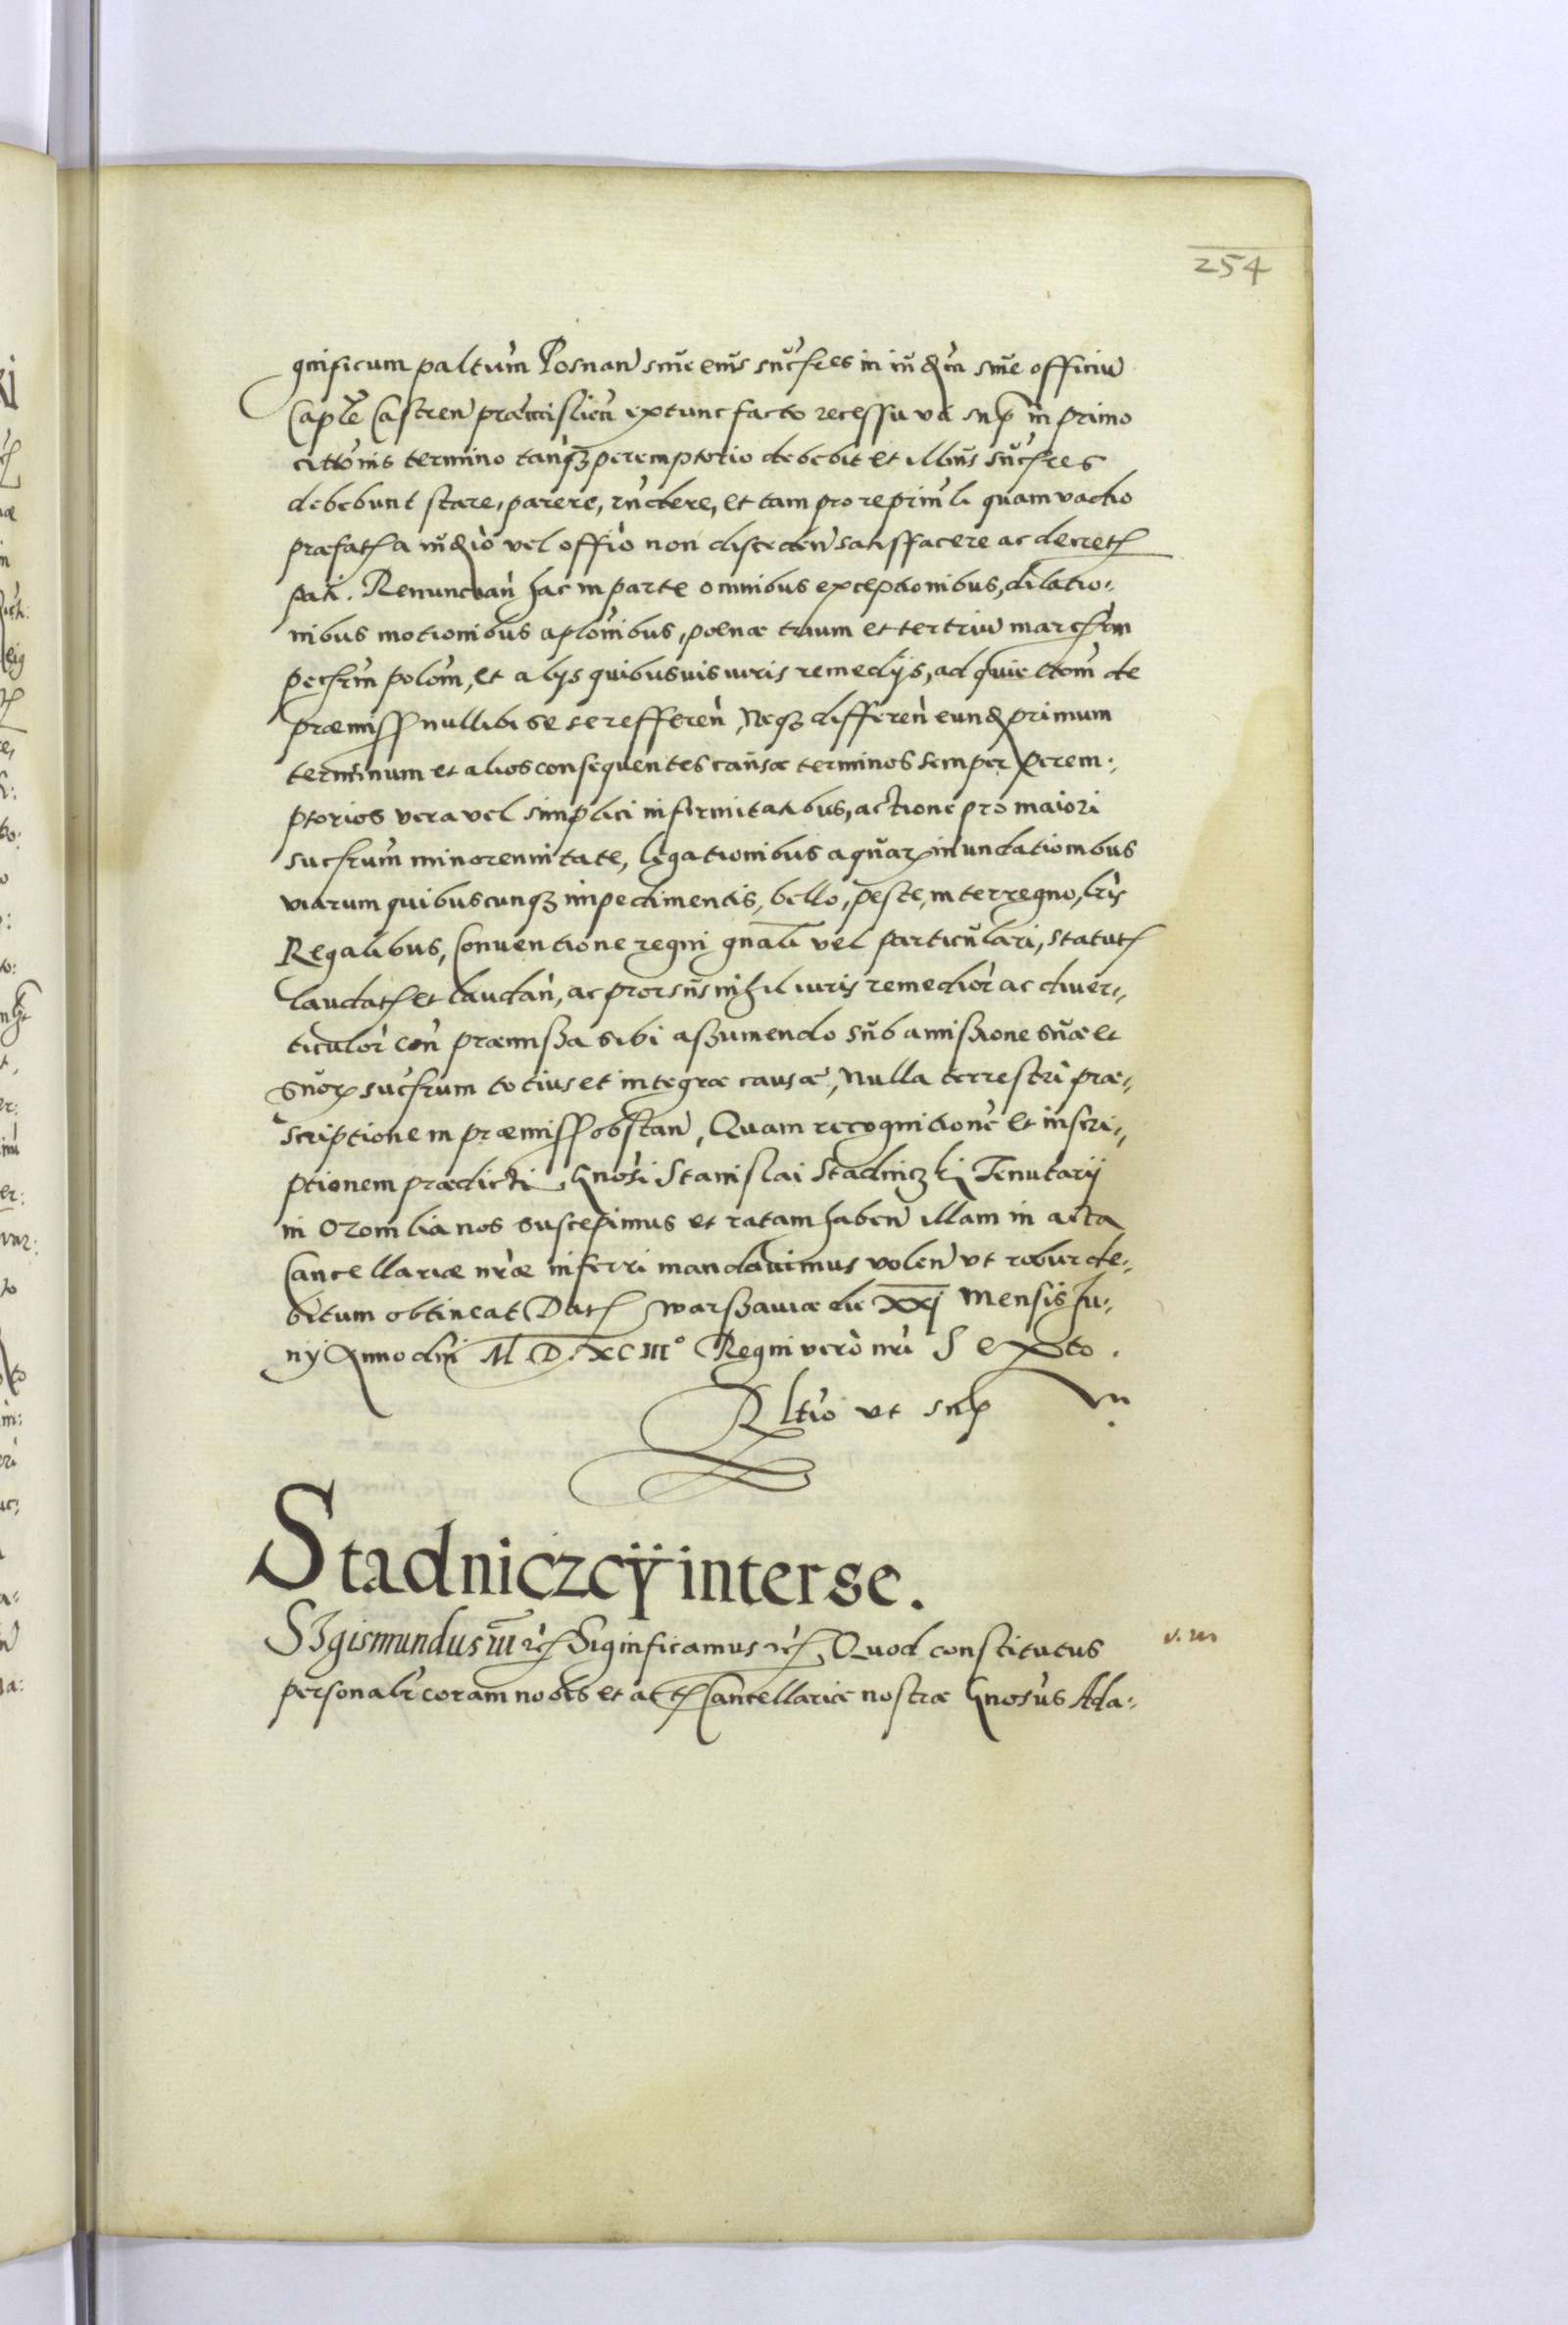 254
gnificum paltũm Posnan siue eius sũcsres in iũdm siue officiu
Caple Castren præmislien extunc facto recessu vt sup in primo
cittonis termino tanq̃ꝫ peremptorio debebit et illius sũcsres
debebunt stare, parere, rñdere, et tam pro reprim li quam vadio
præfatꝭ a iũdio vel offio non disceden satisfacere ac decretꝭ
pati. Renuncian hac in parte omnibus exceptionibus, dilatio:
nibus motionibus aplonibus, poenæ trium et tertriu marcarum
pecrim polom, et alijs quibusuis iuris remedijs, ad quietom de
præmiss nullibi se se refferen, Neqꝫ differen eund primum
terminum et alios consequentes causæ terminos semper perem:
ptorios vera vel simplici infirmitatibus, actione pro maiori
sucsrum minorennitate, legationibus aquarꝝ inundationibus
viarum quibuscunqꝫ impedimentis, bello, peste, interregno, lris
Regalibus, Conuentione regni gnali vel particulari, statutꝭ
laudatꝭ et laudan, ac prorsus nihil iuris remedior ac diuer:
ticulor con præmissa sibi assumendo sub amissione suæ et
suorꝝ sucsrum totius et integræ causæ, Nulla terrestri præ:
scriptione in præmiss obstan, Quam recognitione et inscri:
ptionem prædicti Gnosi Stanislai Stadniczki Tenutarij
in Oromlia nos suscepimus et ratam haben illam in acta
Cancellariæ nræ inferri mandauimus volen vt robur de:
bitum obtineat Datꝭ Warszauiæ die XXI Mensis Ju:
nij Anno dni M.D.XCIII° Regni vero nri Sexto.
Rltio vt sup
Stadniczcÿ inter se.
SIgismundus III etc Significamus etc, Quod constitutus
personalr coram nobis et actꝭ Cancellariæ nostræ Gnosus Ada: